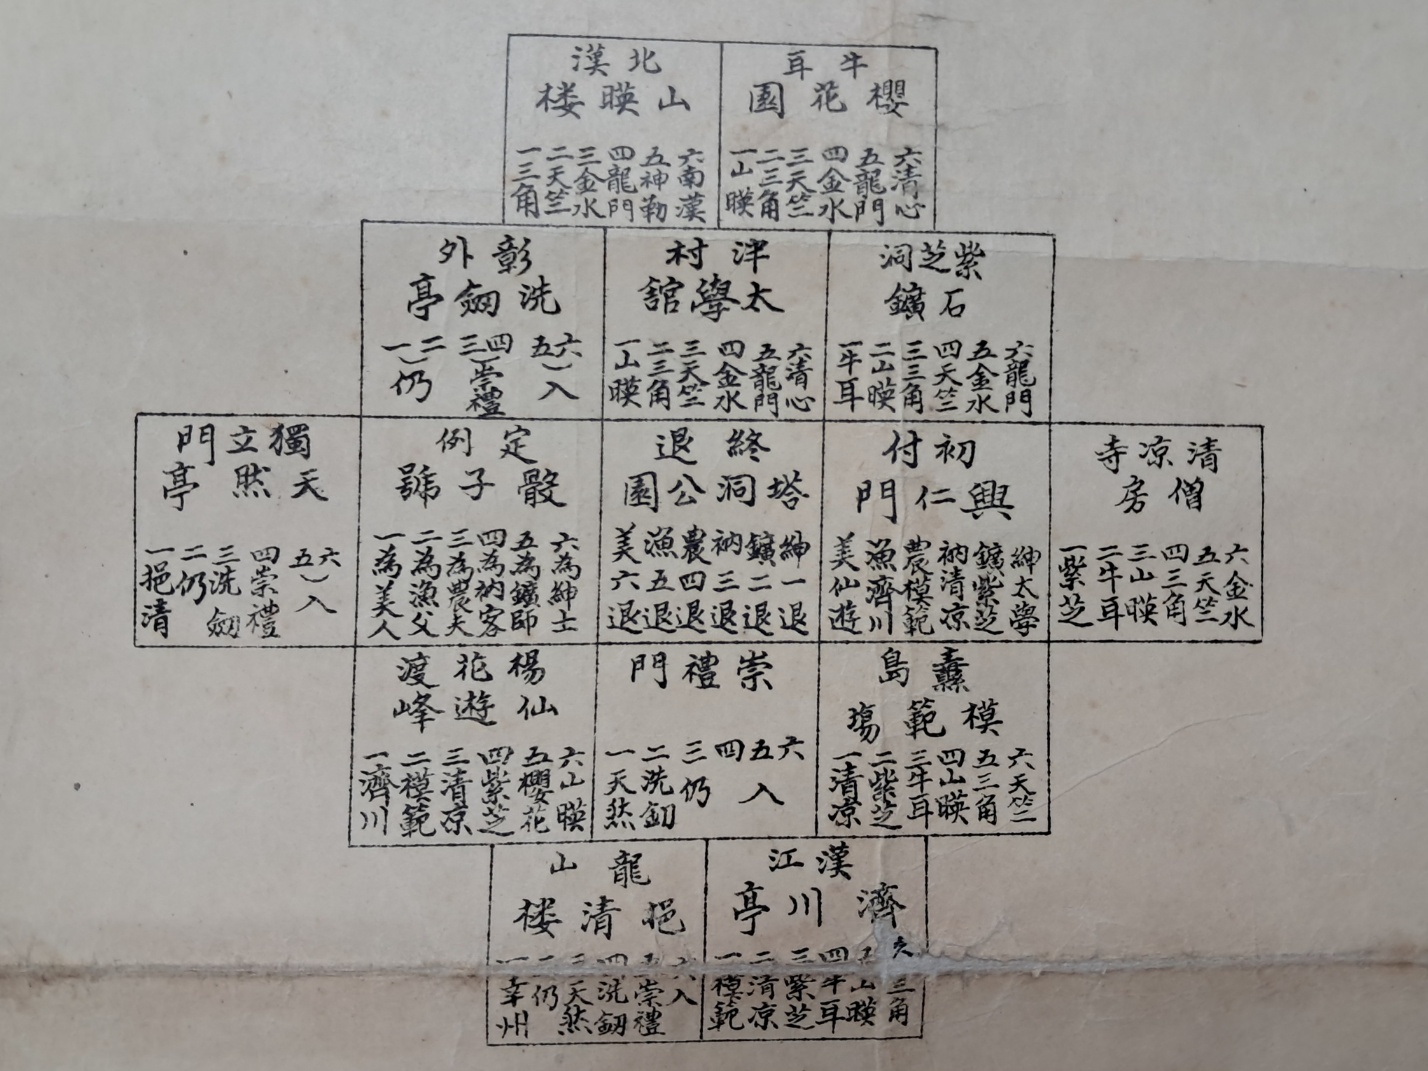 牛耳
櫻花園
一山暎
二三角
三天竺
四金水
五龍門
六清心
北漢
山暎楼
一三角
二天竺
三金水
四龍門
五神勒
六南漢
紫芝洞
石鑛
一牛耳
二山暎
三三角
四天竺
五金水
六龍門
津村
太學館
一山暎
二三角
三天竺
四金水
五龍門
六清心
彰外
洗劒亭
一二仍
三四崇禮
五六入
清凉寺
僧房
一紫芝
二牛耳
三山暎
四三角
五天竺
六金水
初付
興仁門
美仙遊
漁濟川
農模範
衲清凉
鑛紫芝
紳太學
終退
塔洞公園
美六退
漁五退
農四退
衲三退
鑛二退
紳一退
定例
骰子號
一為美人
二為漁父
三為農夫
四為衲客
五為鑛師
六為紳士
獨立門
天然亭
一挹清
二仍
三洗劒
四崇禮
五六入
纛島
模範塲
一清凉
二紫芝
三牛耳
四山暎
五三角
六天竺
崇禮門
一天然
二洗釰
三仍
四五六入
楊花渡
仙遊峰
一濟川
二模範
三清凉
四紫芝
五櫻花
六山暎
漢江
濟川亭
一模範
二清凉
三紫芝
四牛耳
五山暎
六三角
龍山
挹清楼
一幸州
二仍
三天然
四洗釰
五崇禮
六入